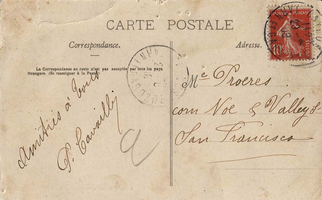 CARTE POSTALE
Correspondance.
Adresse.
La Correspondance au recto n'est pas acceptée par tous les pays
étrangers. (Se renseigner à la Poste).
Mc Procres
corn Noe & Valley St
San Francisco
Amitiés à
P. Cavailly
10